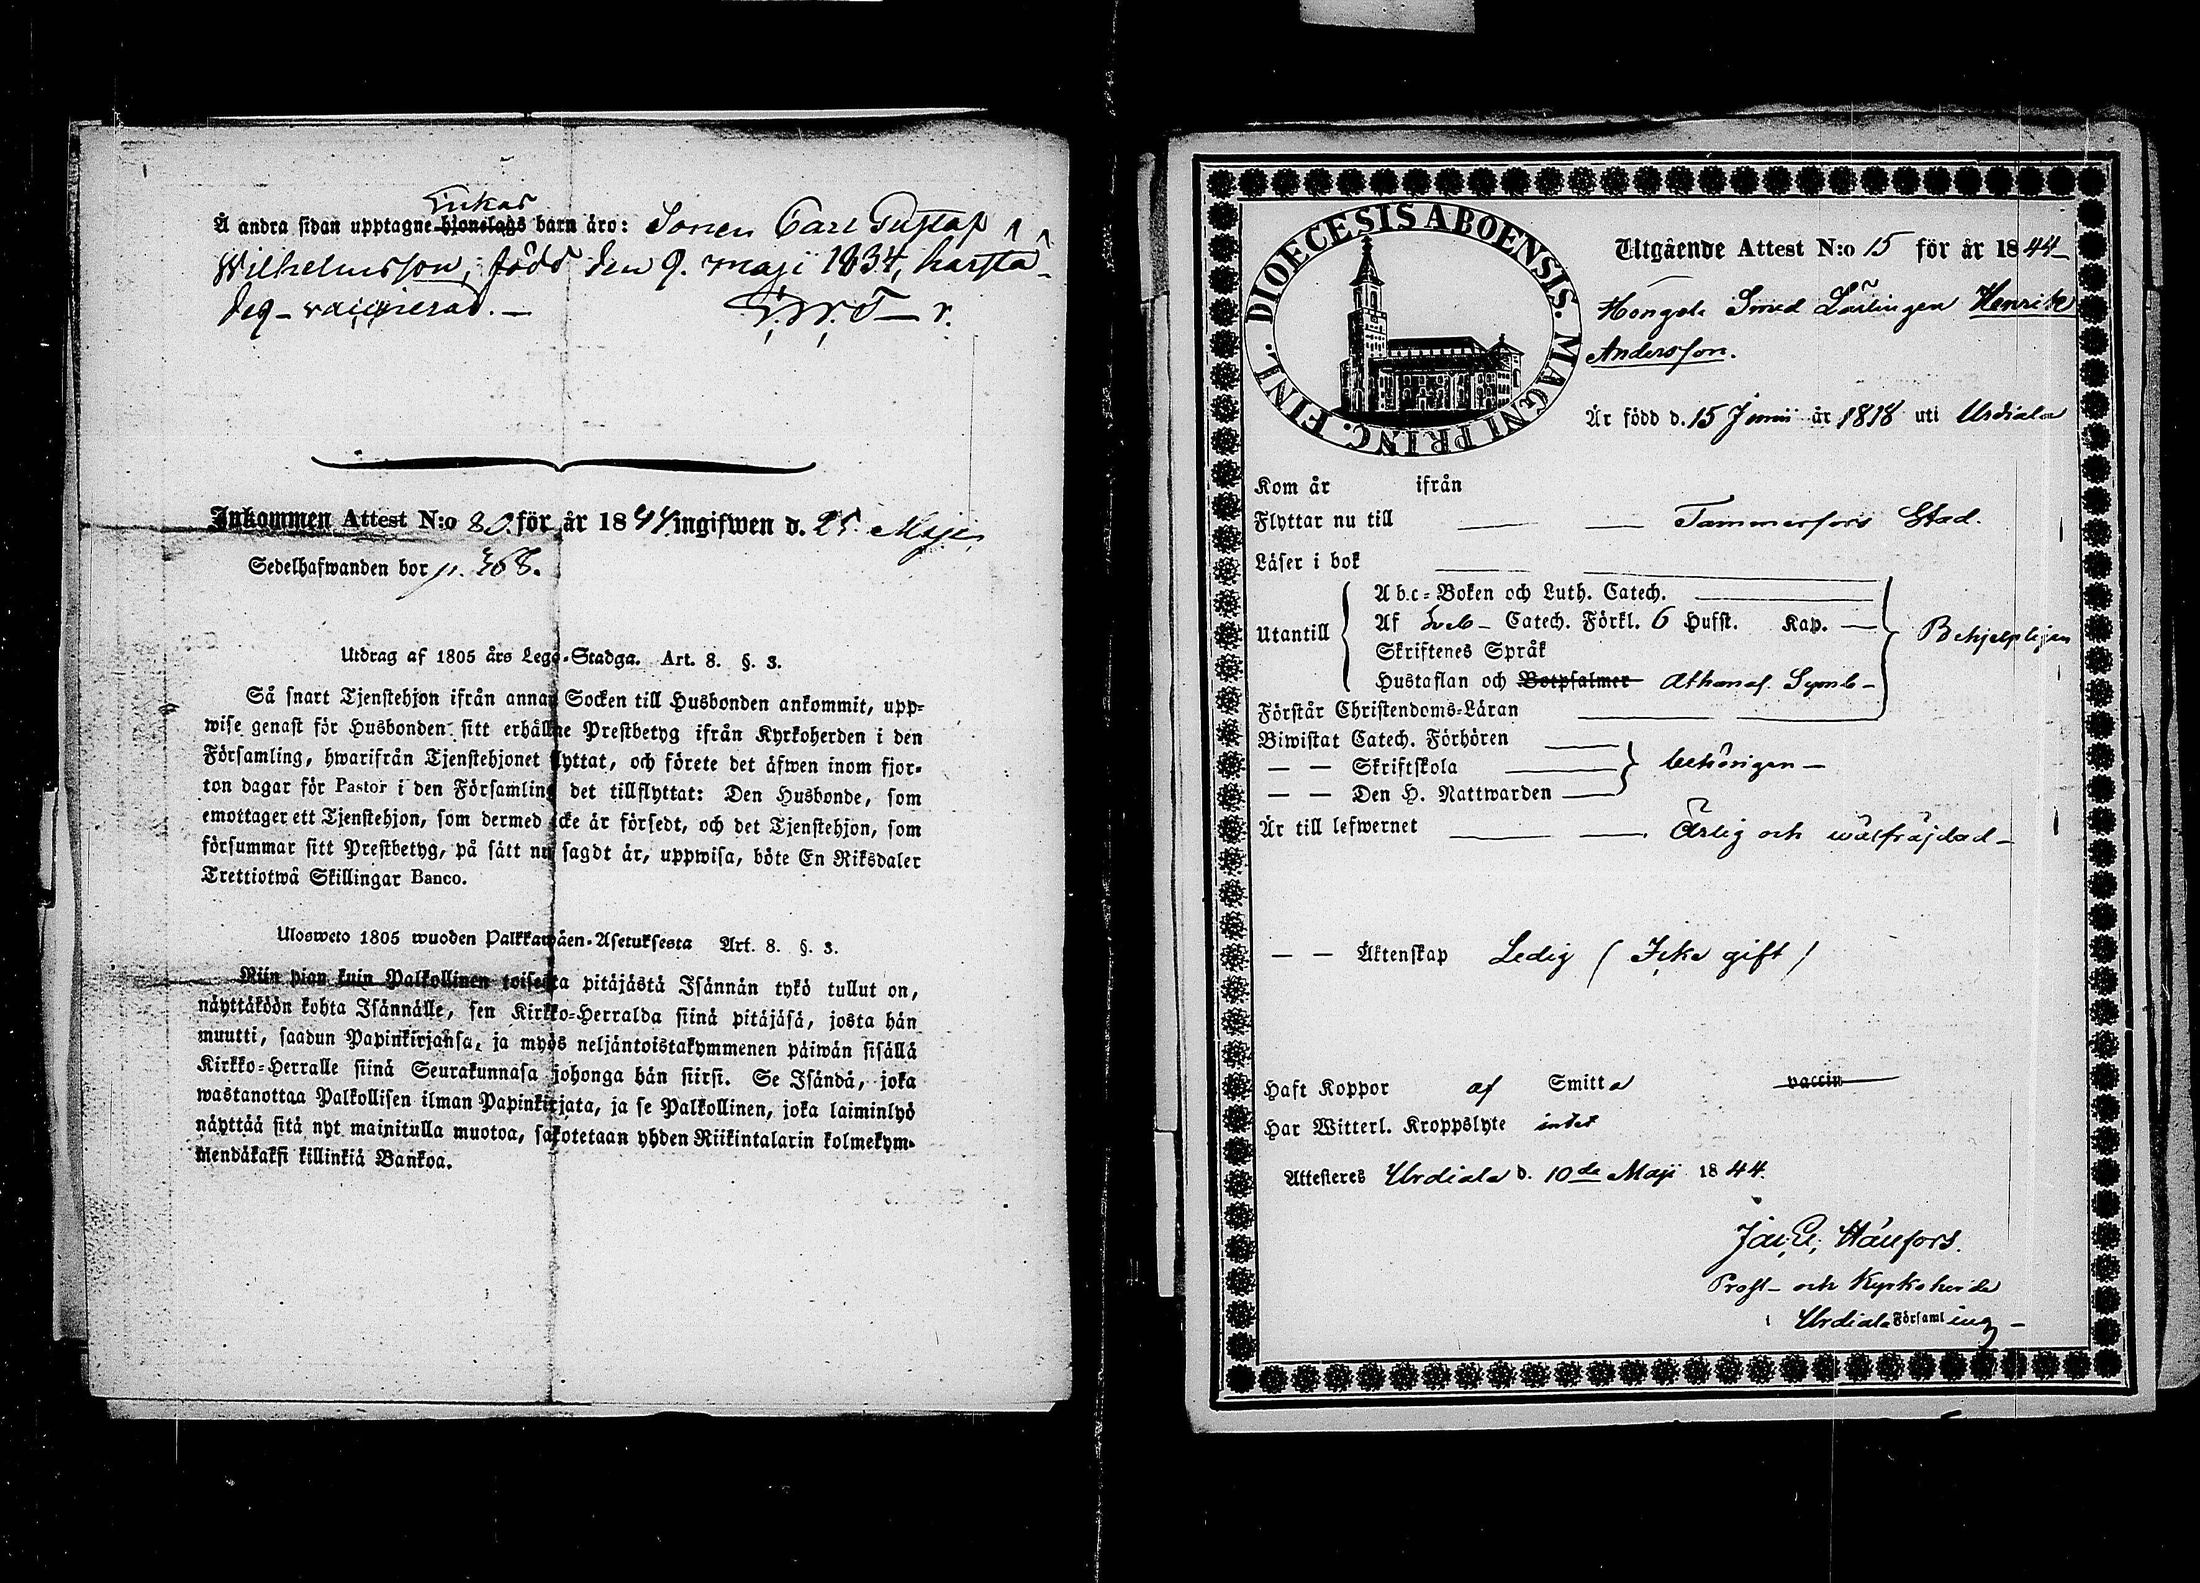 Enkas
Å andra sidan upptagne hjonelags barn äro: Sonen Carl Gustaf
Wilhelmsson, född den 9. maji 1834, harstä-
deg-vaccinerad.—
Inkommen Attest N:o 80. för år 1844. ingifwen d. 25. Maji
Sedelhafwanden bor p. 368.
Utdrag af 1805 års Lego-Stadga. Art. 8. §. 3.
Så snart Tjenstehjon ifrån annan Socken till Husbonden ankommit, upp-
wise genast för Husbonden sitt erhållne Prestbetyg ifrån Kyrkoherden i den
Församling, hwarifrån Tjenstehjonet flyttat, och förete det äfwen inom fjor-
ton dagar för Pastor i den Församling det tillflyttat: Den Husbonde, som
emottager ett Tjenstehjon, som dermed icke är försedt, och det Tjenstehjon, som
försummar sitt Prestbetyg, på sätt nu sagdt är, uppwisa, böte En Riksdaler
Trettiotwå Skillingar Banco.
Ulosweto 1805 wuoden Palkkawäen-Asetuksesta Art. 8. §. 3.
Niin pian kuin Palkollinen toisesta pitäjästä Isännän tykö tullut on,
näyttäköön kohta Isännälle, sen Kirkko-Herralda siinä pitäjäsä, josta hän
muutti, saadun Papinkirjansa, ja myös neljäntoistakymmenen päiwän sisällä
Kirkko-Herralle siinä Seurakunnasa johonga hän siirsi. Se Isändä, joka
wastanottaa Palkollisen ilman Papinkirjata, ja se Palkollinen, joka laiminlyö
näyttää sitä nyt mainitulla muotoa, sakotetaan yhden Riikintalarin kolmekym-
mendäkaksi killinkiä Bankoa.
DIOECESIS ABOENSIS. MAGNI PRINC. FINL.
Utgående Attest N:o 15 för år 1844
Kongl. Smed Lärlingen Henrik
Andersson.
Är född d. 15 Junii år 1818 uti Urdiala
Kom år ifrån
Flyttar nu till Tammerfors Stad.
Läser i bok
Utantill
Abc-Boken och Luth. Catech.
Af Sveb- Catech. Förkl. 6 Hufst. Kap.
Skriftenes Språk
Hustaflan och Botpsalmer Athanas. Symb-
Behjelpligen
Förstår Christendoms-Läran
Biwistat Catech. Förhören
— — Skriftskola behörigen
— — Den H. Nattwarden
Är till lefwernet Ärlig och wälfräjdad
— — Äktenskap Ledig (Icke gift)
Haft Koppor af Smitta vaccin
Har Witterl. Kroppslyte intet
Attesteres Urdiala d. 10de Maji 1844.
Prost- och Kyrkoherde
i Urdiala Församling